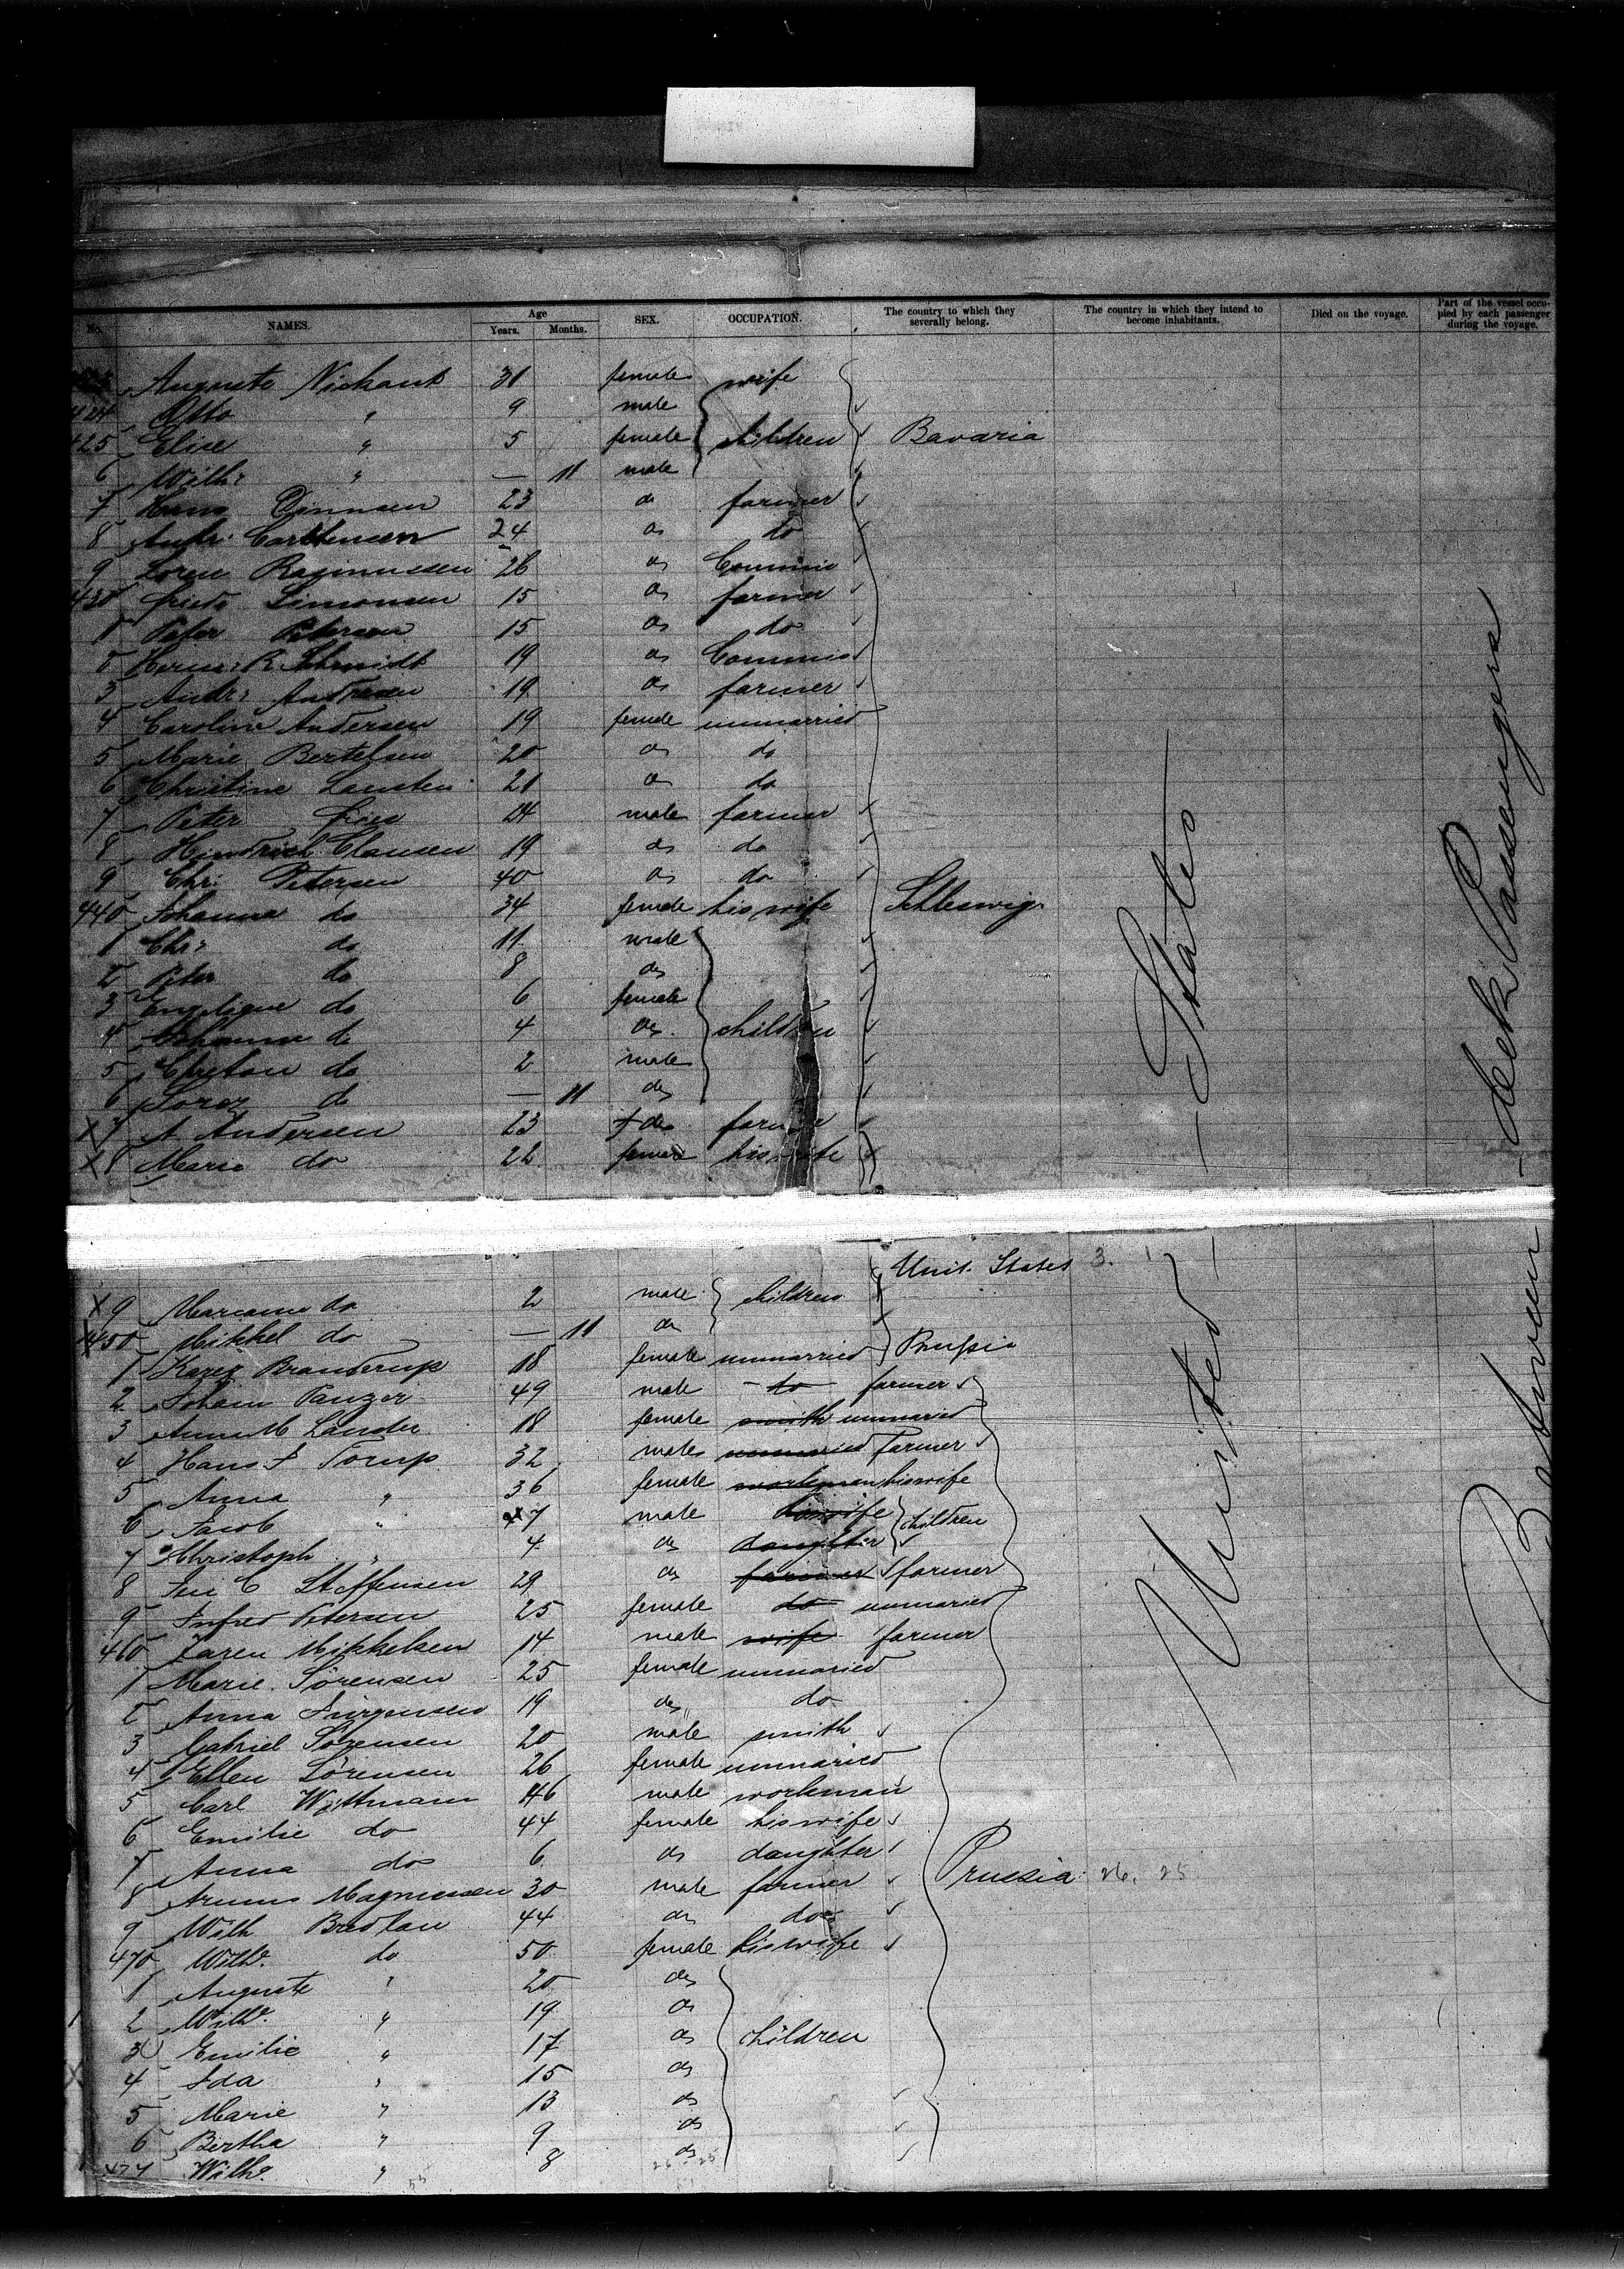 No. NAMES. Age Years. Months. SEX. OCCUPATION. The country to which they severally belong. The country in which they intend to become inhabitants. Died on the voyage. Part of the vessel occupied by each passenger during the voyage.
Auguste 31 female wife
424 Otto " 9 male
425 Elise " 5 female children Bavaria
6 Wilh: " — 11 male
7 Hans 23 do farmer
8 Andr: Carstensen 24 do do
9 Soren Rasmussen 26 do Commis
430 Simonsen 15 do farmer
1 Peter Petersen 15 do do
2 Herm: R. Schmidt 19 do Commis
3 Andr: Andresen 19 do farmer
4 Caroline Andersen 19 female unmarried
5 Marie Bertelsen 20 do do
6 Christine 21 do do
7 Peter 24 male farmer
8 Hendrich Clausen 19 do do
9 Chr: Petersen 40 do do
440 Johanna do 34 female his wife Schleswig
1 Chr: do 11 male
2 Peter do 8 do
3 do 6 female
4 Johanna do 4 do children
5 do 2 male
6 do — 11 do
X 7 A. Andersen 23 do farmer
X 8 Marie do 22 female his wife
Unit. States 3. 1
X 9 do 2 male children
X 450 Mikkel do — 11 do
1 Branderup 18 female unmarried Prussia
2 Johann Panzer 49 male do farmer
3 Anna M 18 female smith unmaried
4 Hans J Torup 32 male unmaried farmer
5 Anna " 36 female workman his wife
6 Jacob " 7 male his wife children
7 Christoph " 4 do daughter
8 C Steffensen 29 do farmer farmer
9 Petersen 25 female do unmaried
460 Mikkelsen 14 male wife farmer
1 Marie Sörensen 25 female unmaried
2 Anna Jürgensen 19 do do
3 Gabriel Sörensen 20 male smith
4 Ellen Sörensen 26 female unmaried
5 Carl Wittmann 46 male workman
6 Emilie do 44 female his wife
7 Anna do 6 do daughter
8 Magnussen 30 male farmer Prussia 26. 25
9 Wilh Bredlau 44 do do
470 Wilhe. do 50 female his wife
1 Auguste " 20 do
2 Wilhe. " 19 do
3 Emilie " 17 do children
4 Ida " 15 do
5 Marie " 13 do
6 Bertha " 9 do
477 Wilhe. " 8 do
United
States
deck Passengers